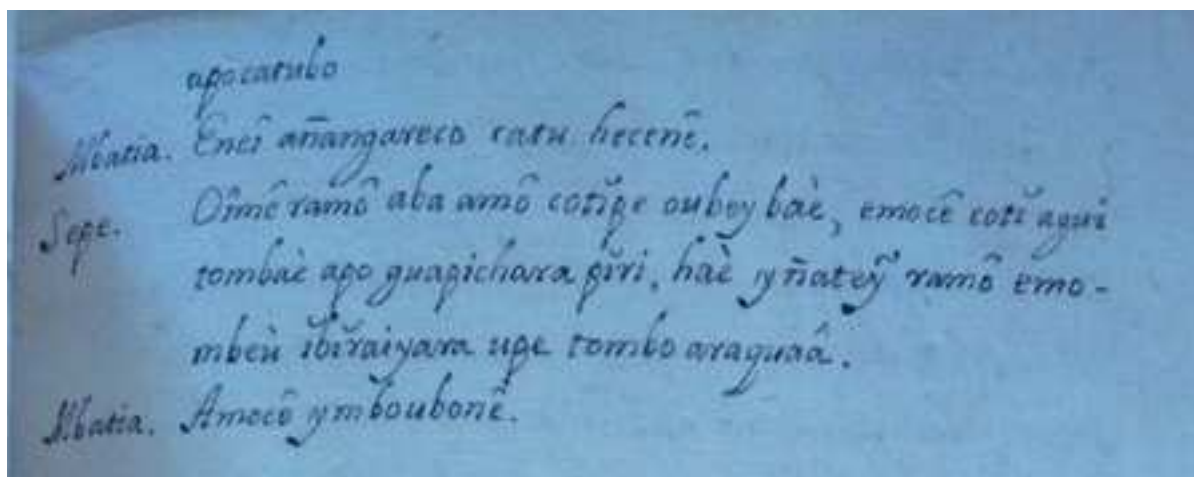 apocatubo
Mbatia. Eneî añangareco catu hecenê.
Sepe. Oîmê ramô aba amô cotĭpe oubey baè, emocê cotĭ agui
tombaè apo guapichara pĭri, haè yñateỹ ramô emo-
mbeù ĭbĭraiyara upe tombo araguaâ.
Mbatia. Amocê ymboubonê.